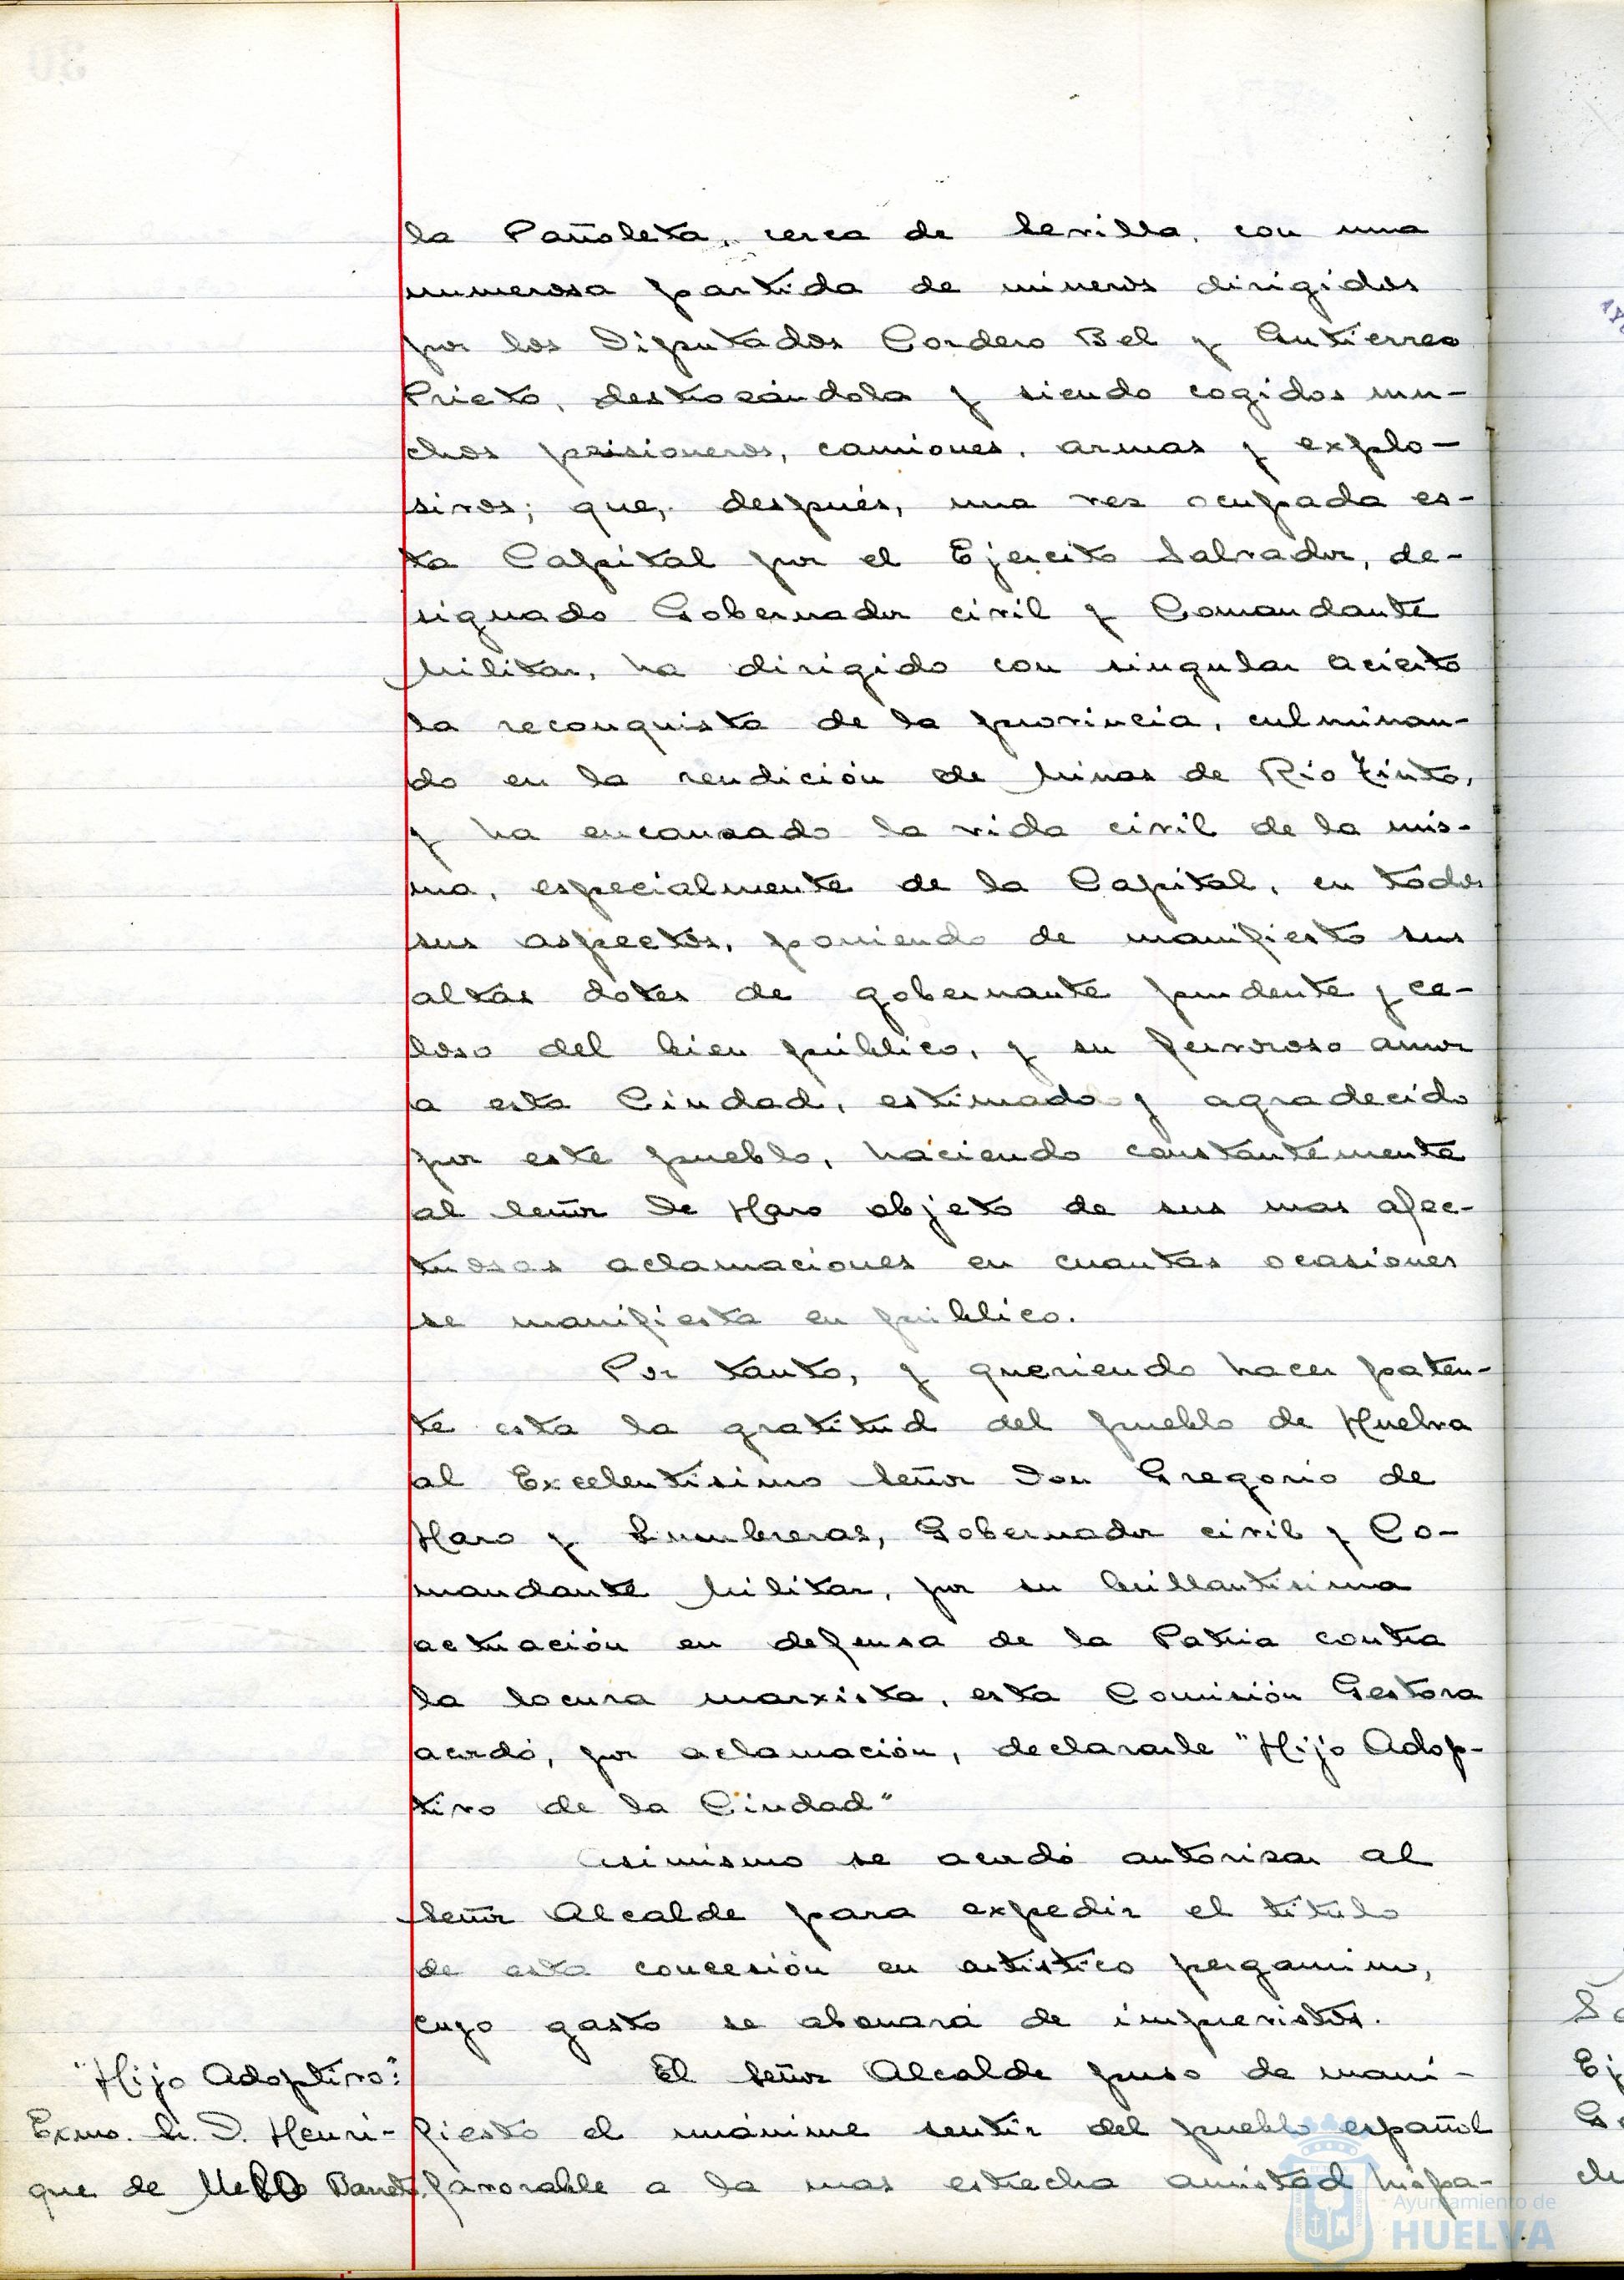 la Pañoleta, cerca de Sevilla, con una
numerosa partida de mineros dirigidos
por los Diputados Cordero Bel y Gutierrez
Prieto, destrozándola y siendo cogidos mu-
chos prisioneros, camiones, armas y explo-
sivos; que, después, una vez ocupada es-
ta Capital por el Ejercito Salvador, de-
signado Gobernador civil y Comandante
Militar, ha dirigido con singular acierto
la reconquista de la provincia, culminan-
do en la rendición de Minas de Rio Tinto,
y ha encauzado la vida civil de la mis-
ma, especialmente de la Capital, en todos
sus aspectos, poniendo de manifiesto sus
altas dotes de gobernante prudente y ce-
loso del bien público, y su fervoroso amor
a esta Ciudad, estimado y agradecido
por este pueblo, haciendo constantemente
al Señor De Haro objeto de sus mas afec-
tuosas aclamaciones en cuantas ocasiones
se manifiesta en público.
Por tanto, y queriendo hacer paten-
te esta la gratitud del pueblo de Huelva
al Excelentísimo Señor Don Gregorio de
Haro y Lumbreras, Gobernador civil y Co-
mandante Militar, por su brillantísima
actuación en defensa de la Patria contra
la locura marxista, esta Comisión Gestora
acordó, por aclamación, declararle "Hijo Adop-
tivo de la Ciudad"
Asimismo se acordó autorizar al
Señor Alcalde para expedir el título
de esta concesión en artístico pergamino,
cuyo gasto se abonará de imprevistos.
"Hijo Adoptivo:"
Excmo. Sr. D. Henri-
que de Mello Barreto.
El Señor Alcalde puso de mani-
fiesto el unánime sentir del pueblo español
favorable a la mas estrecha amistad hispa-
Ayuntamiento de
HUELVA